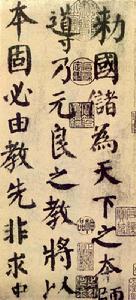 勅國儲為天下之本
導乃元良之教將以
本固必由教先非求